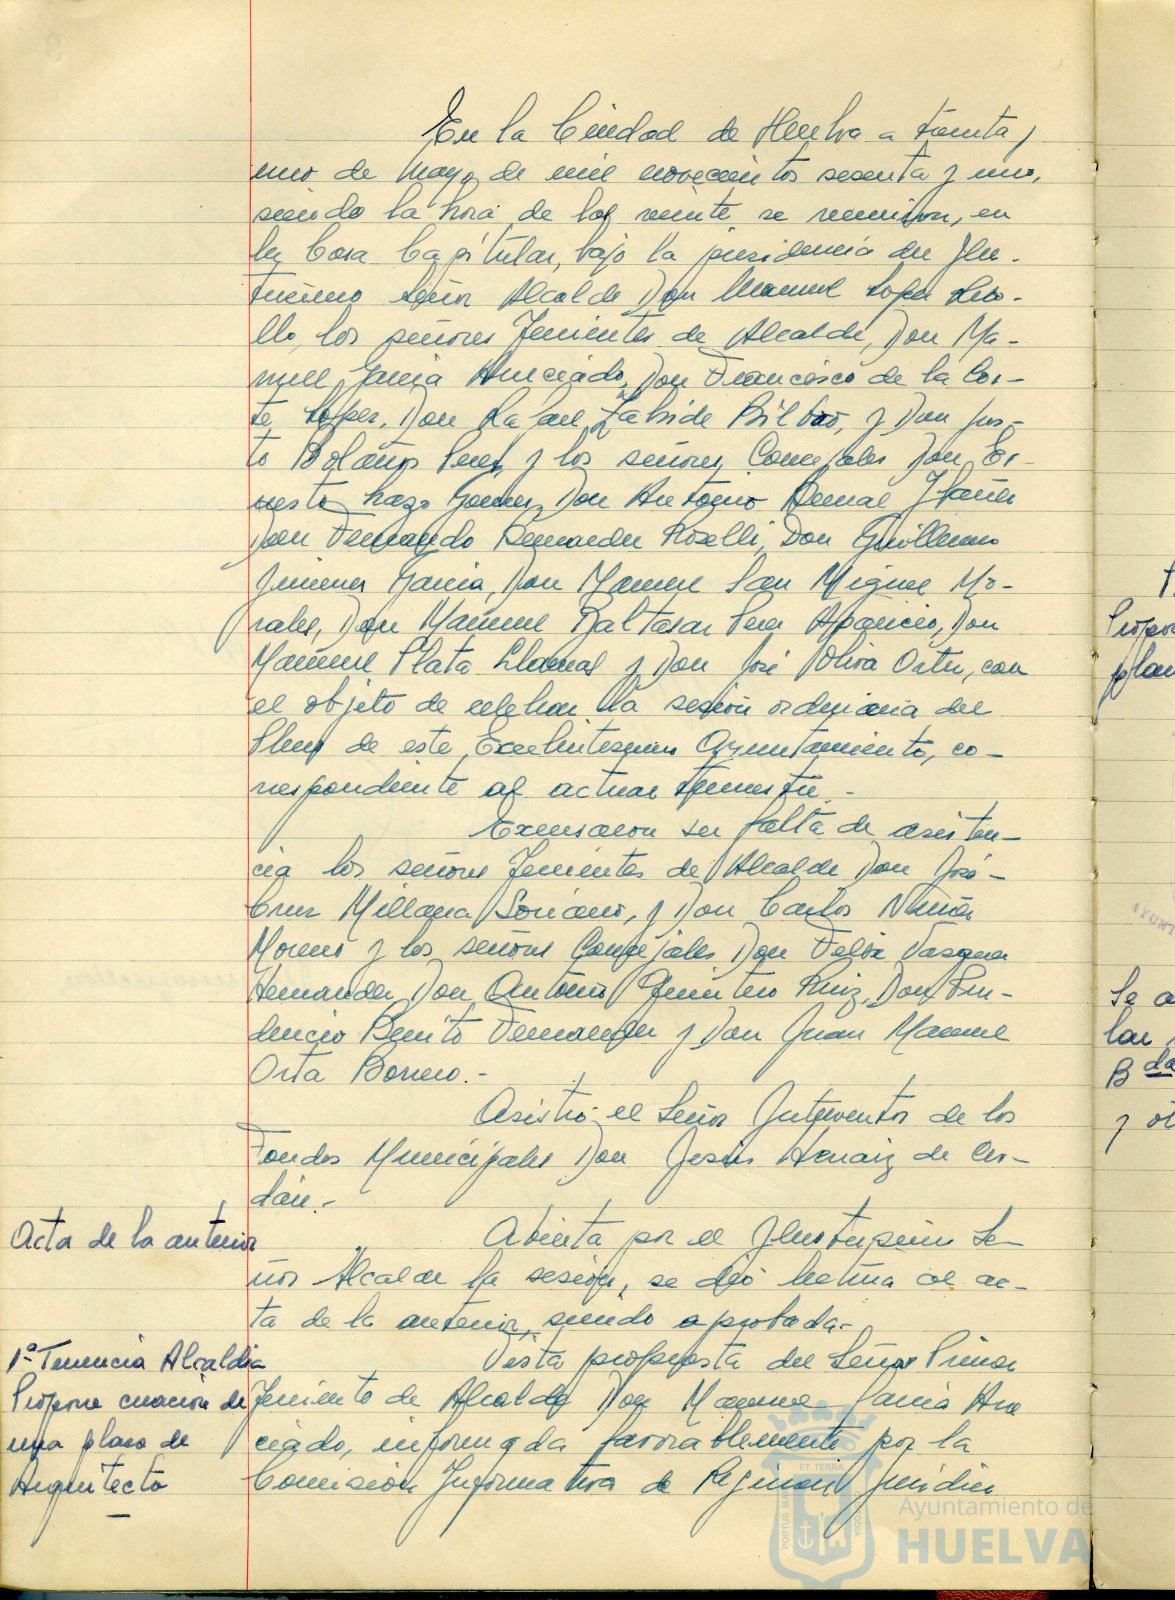 En la Ciudad de Huelva a treinta y
uno de Mayo de mil novecientos sesenta y uno,
siendo la hora de las veinte se reunieron, en
la Casa Capitular, bajo la presidencia del Ilus-
trísimo Señor Alcalde Don Manuel Lopez Rebo-
llo, los señores Tenientes de Alcalde, Don Ma-
nuel Garcia Anuciado, Don Francisco de la Cor-
te Lopez, Don Rafael Zalvide Bilbao, y Don Jus-
to Bolaños Perez y los señores Concejales Don Er-
nesto Lazo Gomez, Don Antonio Bernal Ibañez
Don Fernando Bernardez Roselli, Don Guillermo
Jimenez Garcia, Don Manuel San Miguel Mo-
rales, Don Manuel Baltasar Perez Aparicio, Don
Manuel Plata Llamas y Don José Oliva Ortiz, con
el objeto de celebrar la sesión ordinaria del
Pleno de este Excelentísimo Ayuntamiento, co-
rrespondiente al actual trimestre.-
Excusaron su falta de asisten-
cia los señores Tenientes de Alcalde Don José-
Cruz Millana Soriano, y Don Carlos Nuñez
Moreno y los señores Concejales Don Felix Vazquez
Hernandez, Don Antonio Quintero Ruiz, Don Pru-
dencio Benito Fernandez y Don Juan Manuel
Orta Borrero.-
Asistió el Señor Interventor de los
Fondos Municipales Don Jesús Arnaiz de Cer-
dán.-
Acta de la anterior
Abierta por el Ilustrísimo Se-
ñor Alcalde la sesión, se dió lectura al ac-
ta de la anterior, siendo aprobada.-
1ª Tenencia Alcaldia
Propone creación de
una plaza de
Arquitecto
Vista propuesta del Señor Primer
Teniente de Alcalde Don Manuel Garcia Anu
ciado, informada favorablemente por la
Comisión Informativa de Régimen Jurídico
Ayuntamiento de
HUELVA
ET TERRÆ
Se a
B da